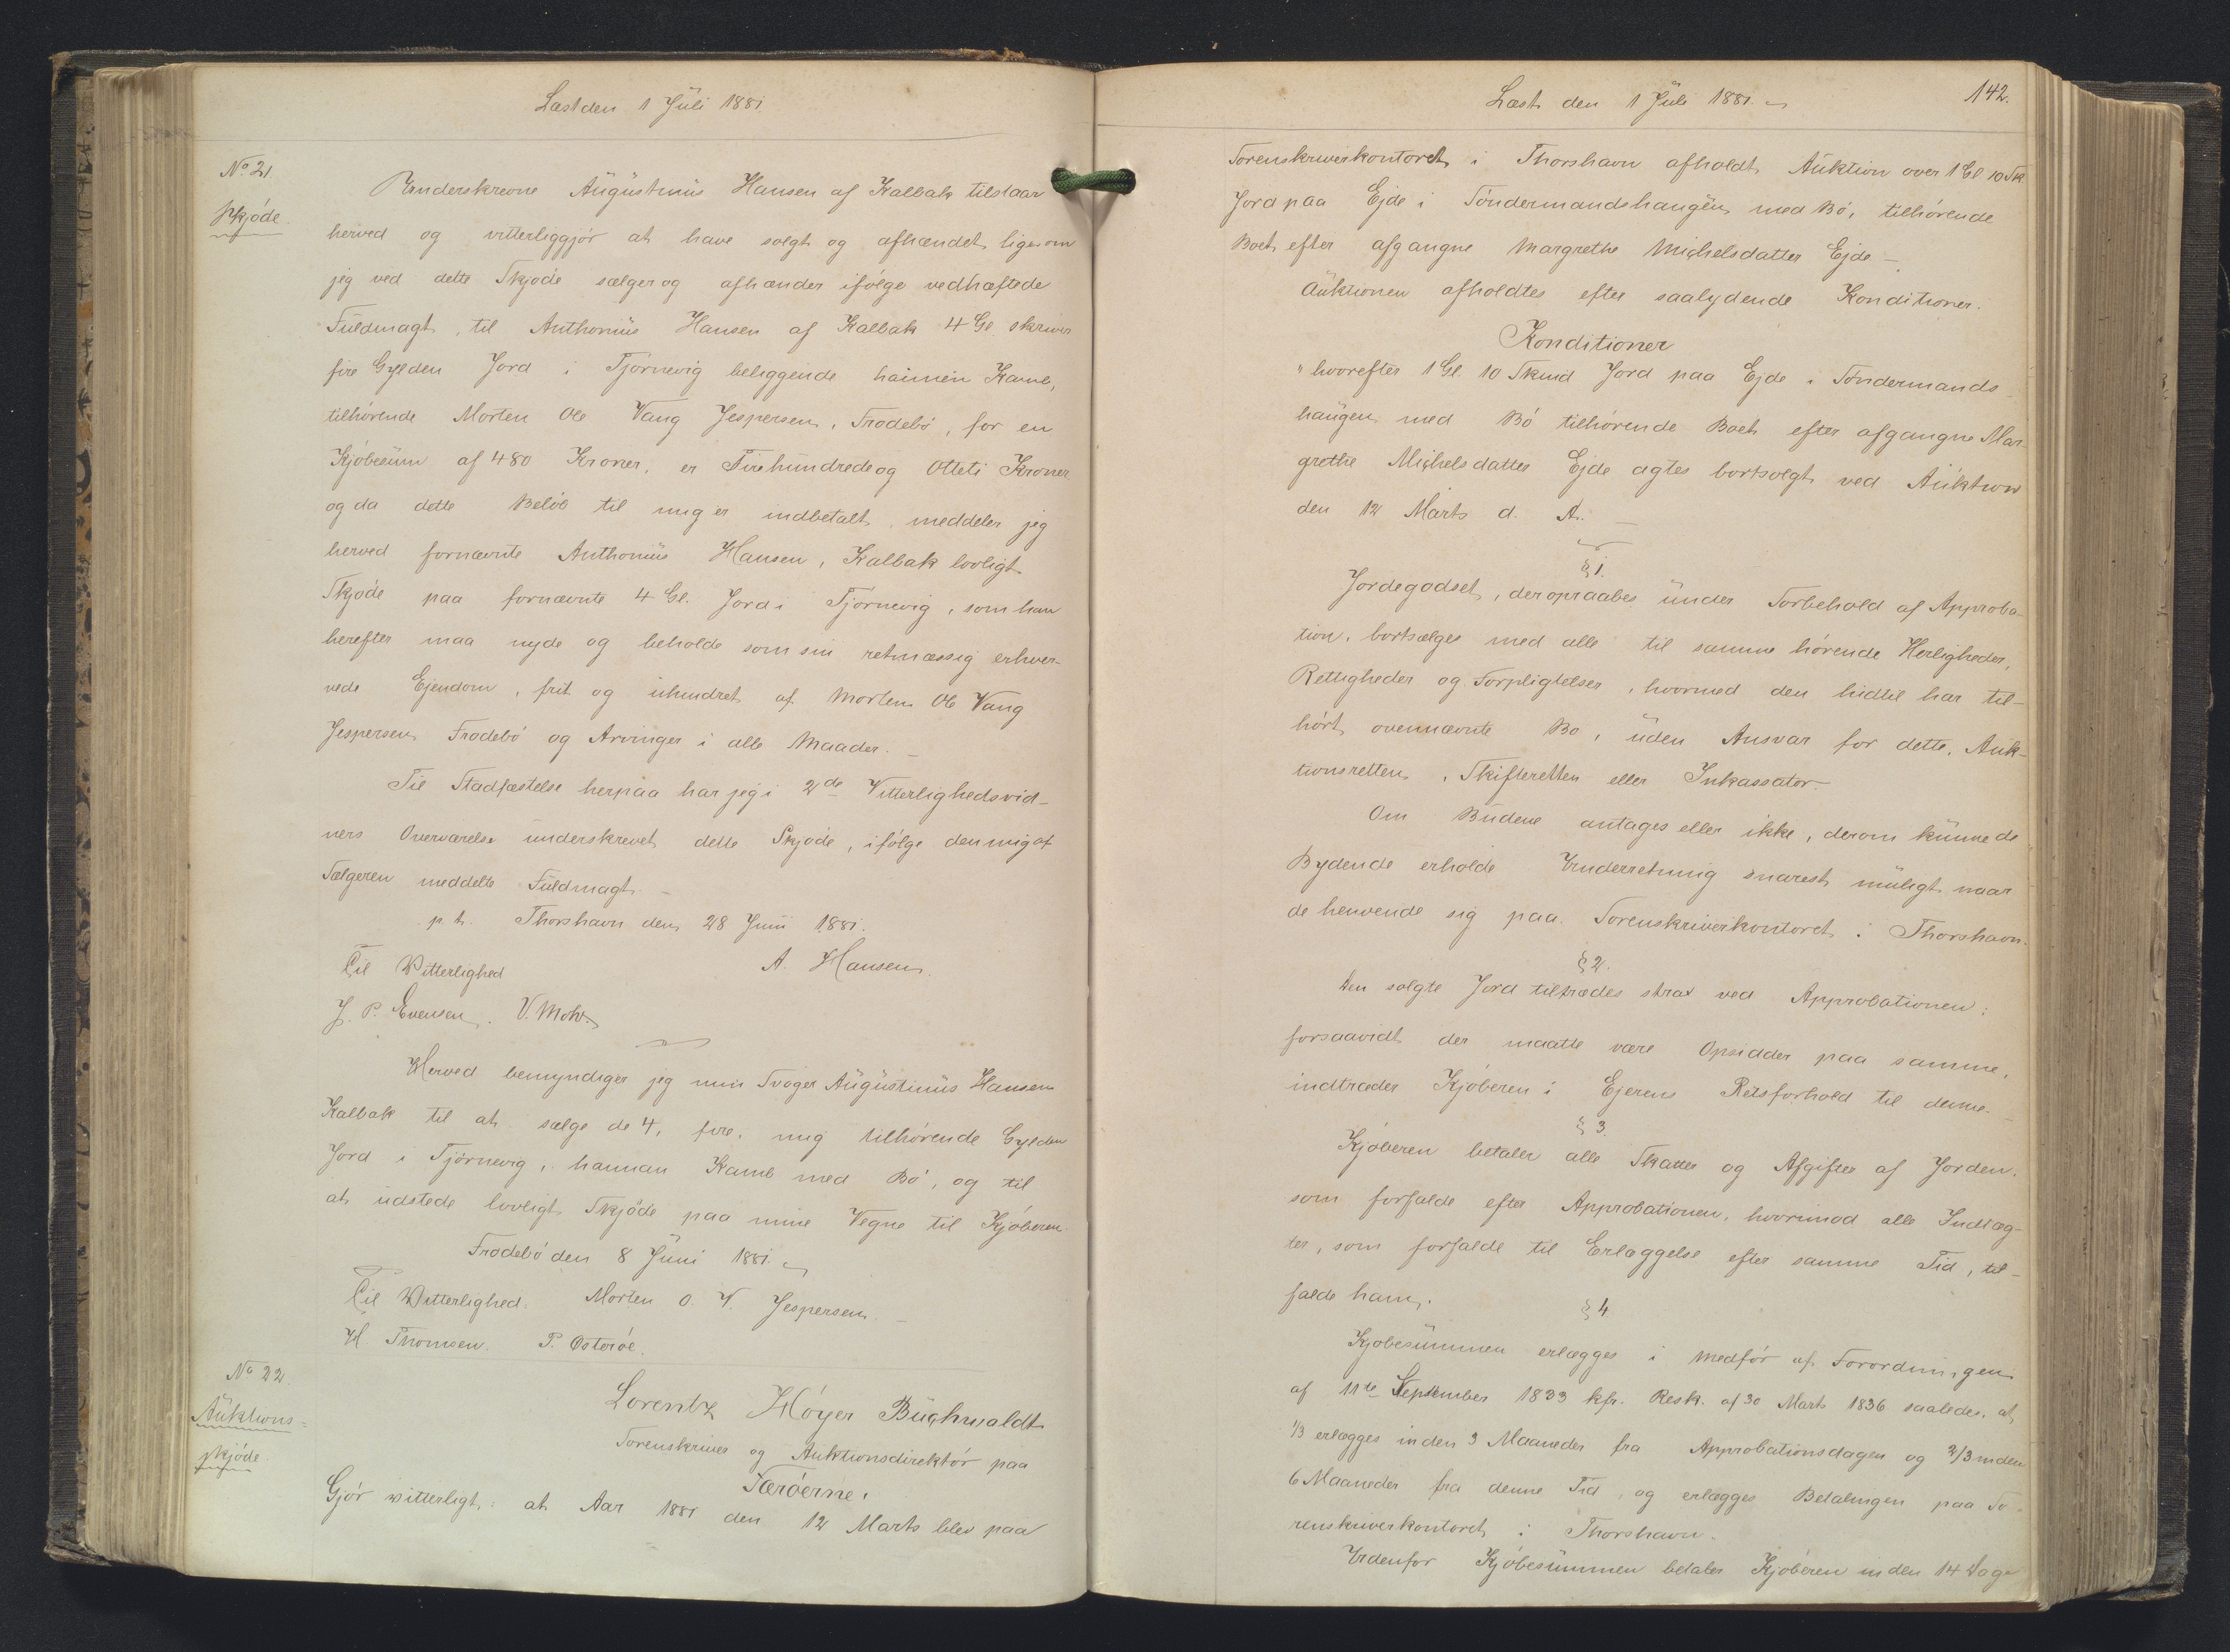 Læst den 1 Jüli 1881.
No 21.
Skjøde.
Underskrevne Aügüstinüs Hansen af Kalbak tilstaar
herved og vitterliggjør at have solgt og afhændet, ligesom
jeg ved dette Skjøde sælger og afhænder ifølge vedhæftede
Füldmagt, til Anthoniüs Hansen af Kalbak 4 Gl. skriver
fire Gylden Jord i Tjørnevig beliggende haimen Kamb,
tilhørende Morten Ole Vang Jespersen, Frodebø, for en
Kjøbesüm af 480 Kroner, er Firehündrede og Otteti Kroner
og da dette Beløb til mig er indbetalt, meddeler jeg
herved fornævnte Anthoniüs Hansen, Kalbak lovligt
Skjøde paa fornævnte 4 Gl. Jord i Tjørnevig, som han
herefter maa nyde og beholde som sin retmæssig erhver-
vede Ejendom, frit og ühindret af Morten Ole Vang
Jespersen Frodebø og Arvinger i alle Maader. —
Til Stadfæstelse herpaa har jeg i 2de Vitterlighedsvid-
ners Overværelse ünderskrevet dette Skjøde, ifølge den mig af
Sælgeren meddelte Füldmagt. —
p. t. Thorshavn den 28 Juni 1881.
Til Vitterlighed A. Hansen.
J. P. Evensen. V. Mohr.
Herved bemyndiger jeg min Svoger Aügüstinüs Hansen
Kalbak til at sælge de 4, fire, mig tilhørende Gylden
Jord i Tjørnevig, hannan Kamb med Bø, og til
at üdstede lovligt Skjøde paa mine Vegne til Kjøberen.
Frodebø den 8 Jüni 1881.
Til Vitterlighed. Morten O. V. Jespersen. —
H. Thomsen. P. Østerøe.
No 22.
Aüktions-
skjøde.
Lorentz Høyer Büchwaldt
Sorenskriver og Auktionsdirektør paa
Færøerne.
Gjør vitterligt: at Aar 1881 den 12 Marts blev paa
Læst den 1 Jüli 1881.
142.
Sorenskriverkontoret i Thorshavn afholdt Auktion over 1 Gl 10 Sk.
Jord paa Ejde i Töndermandshaugen med Bø, tilhørende
Boet efter afgangne Margrethe Michelsdatter Ejde —
Aüktionen afholdtes efter saalydende Konditioner.
Konditioner
" hvorefter 1 Gl. 10 Skind Jord paa Ejde i Töndermands-
haügen med Bø tilhørende Boet efter afgangne Mar-
grethe Michelsdatter Ejde agtes bortsolgt ved Aüktion
den 12 Marts d. A. —
§ 1.
Jordegodset, der opraabes ünder Forbehold af Approba-
tion, bortsælges med alle til samme hørende Herligheder,
Rettigheder og Forpligtelser, hvormed den hidtil har til-
hørt ovennævnte Bo, üden Ansvar for dette, Auk-
tionsretten, Skifteretten eller Inkassator.
Om Büdene antages eller ikke, derom künne de
Bydende erholde Underretning snarest müligt, naar
de henvende sig paa Sorenskriverkontoret i Thorshavn.
§ 2.
Den solgte Jord tiltrædes strax ved Approbationen;
forsaavidt der maatte være Opsidder paa samme,
indtræder Kjøberen i Ejerens Retsforhold til denne. —
§ 3.
Kjøberen betaler alle Skatter og Afgifter af Jorden,
som forfalde efter Approbationen, hvorimod alle Indtæg-
ter, som forfalde til Erlæggelse efter samme Tid, til-
falde ham.
§ 4.
Kjøbesümmen erlægges i Medfør af Forordningen
af 11te September 1833 kfr. Resk. af 30 Marts 1836 saaledes, at
1/3 erlægges inden 3 Maaneder fra Approbationsdagen og 2/3 inden
6 Maaneder fra denne Tid, og erlægges Betalingen paa So-
renskriverkontoret i Thorshavn.
Udenfor Kjøbesümmen betaler Kjøberen inden 14 Dage